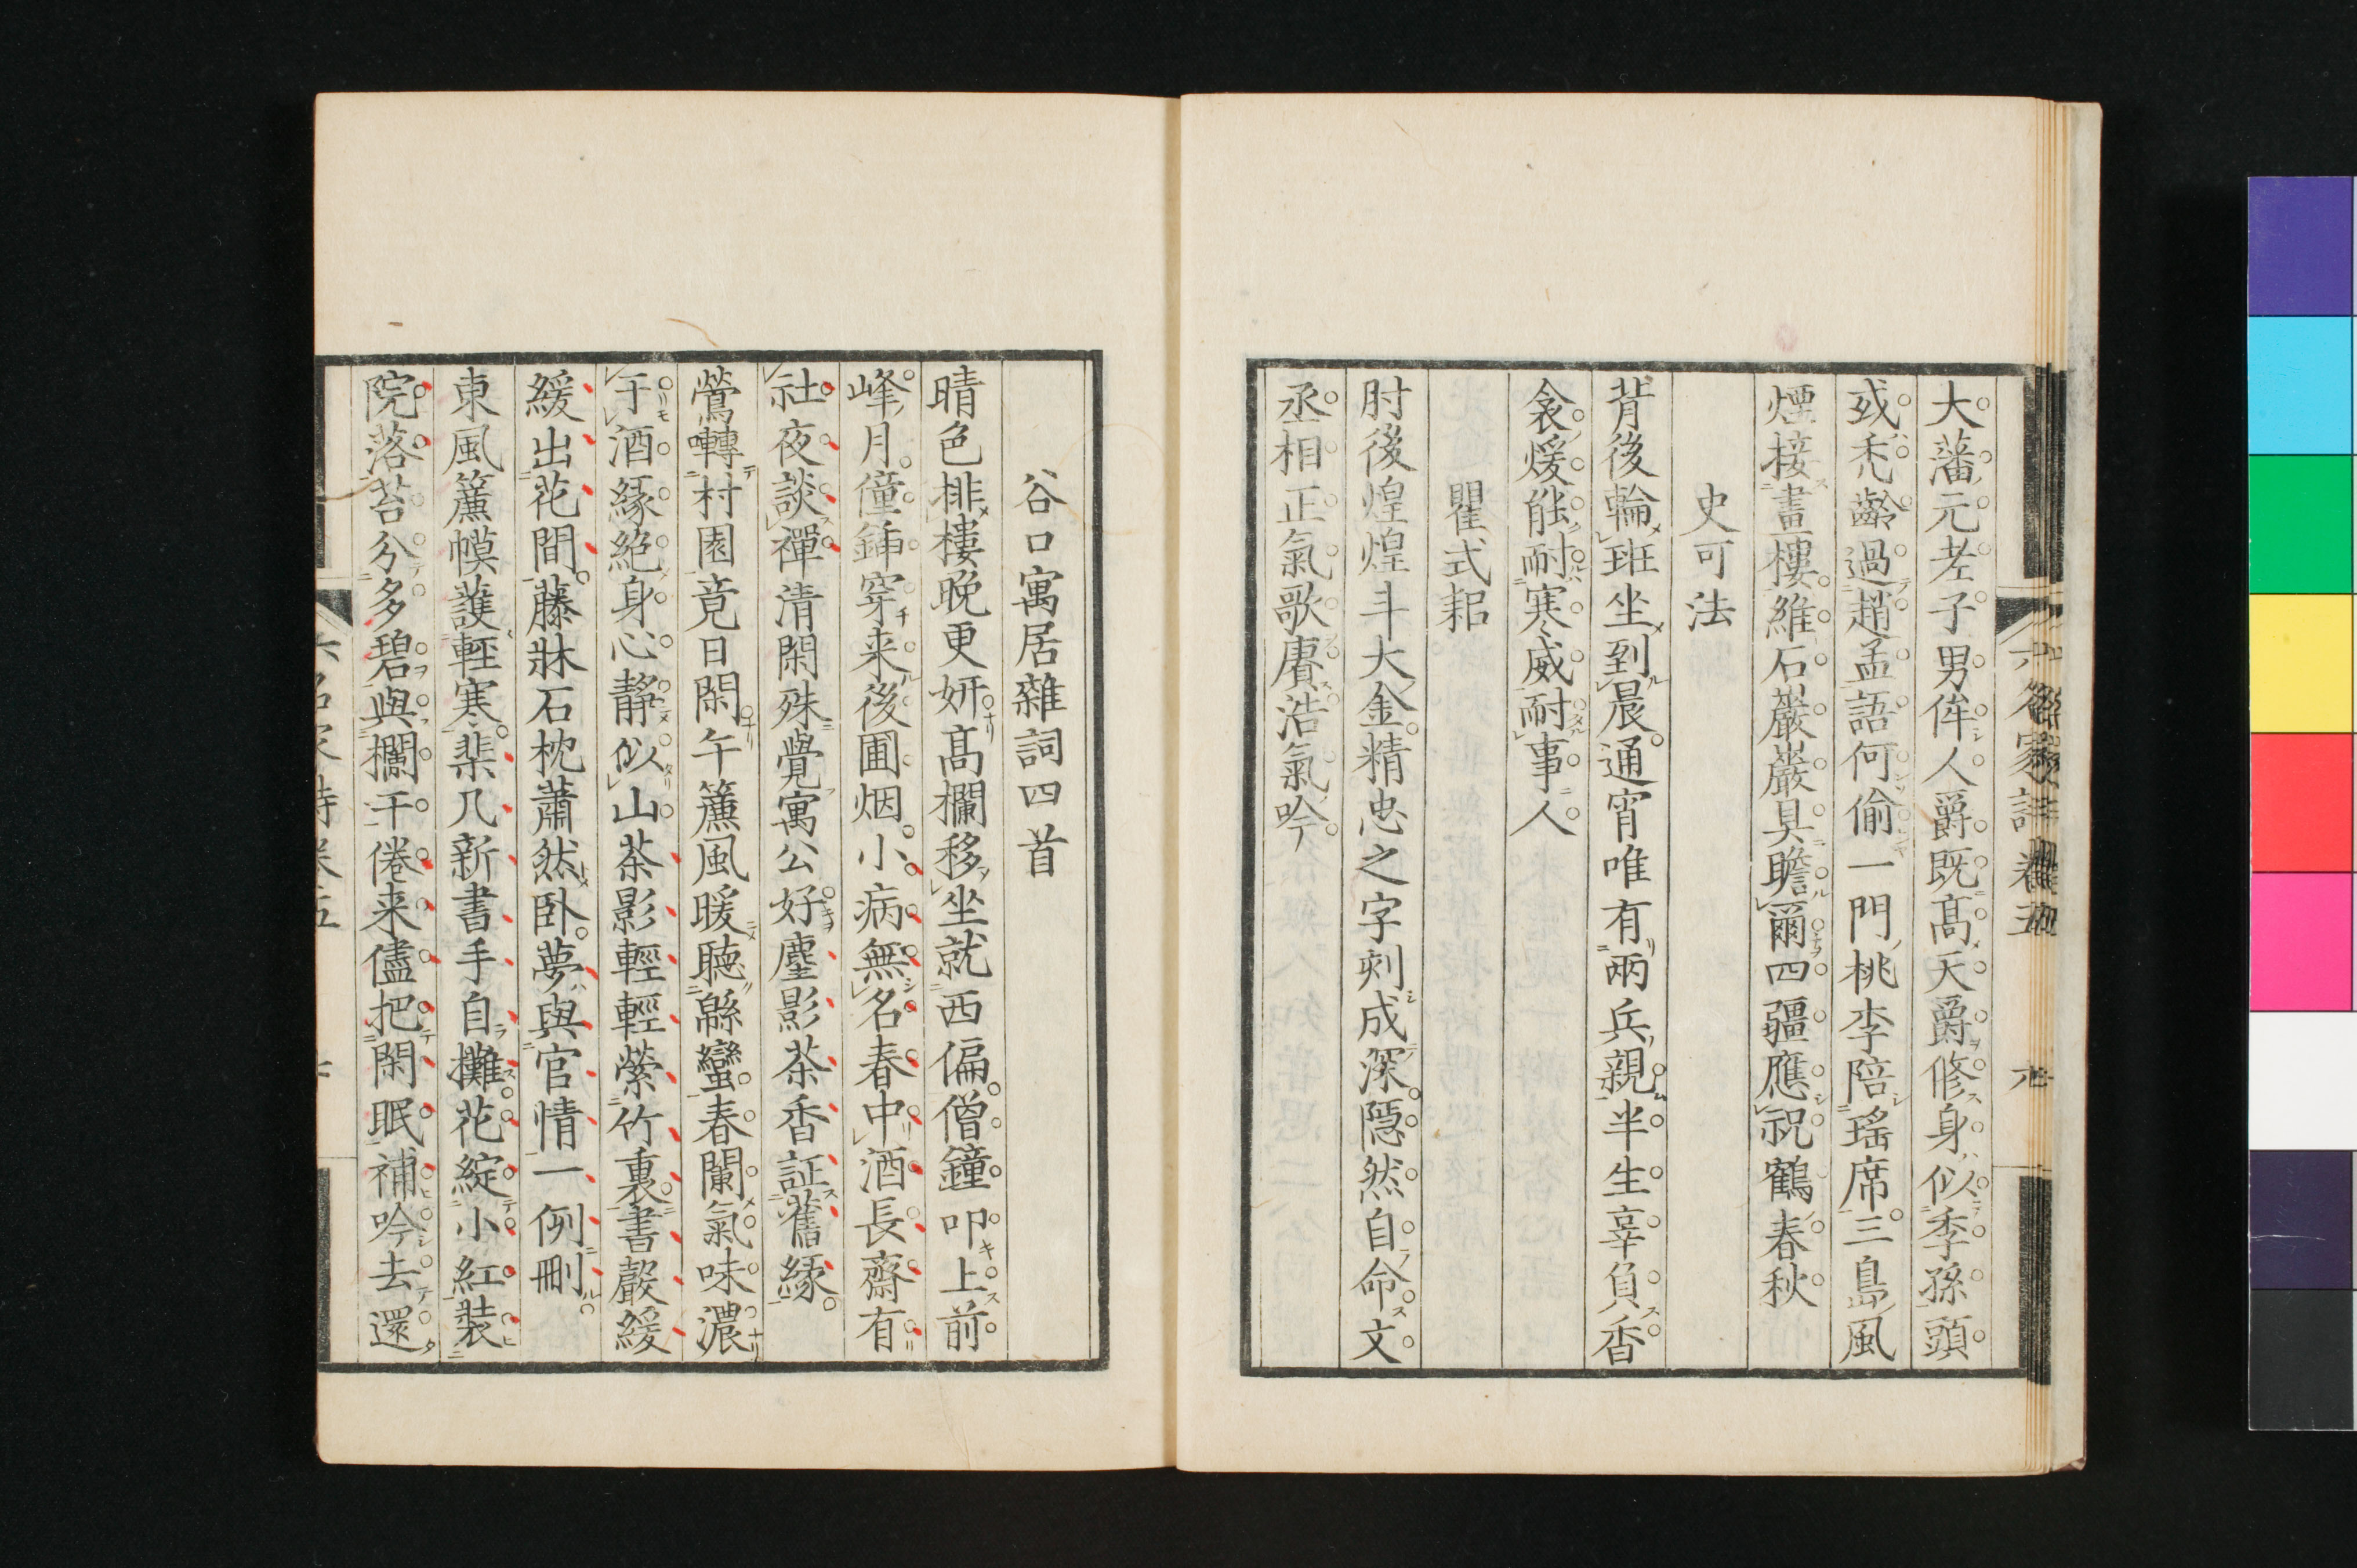 大藩元老子男侔人爵既高天爵修身似季孫頭
或禿齡過趙孟語何偷一門桃李陪瑤席三島風
煙接畫樓維石巖巖具瞻爾四疆應祝鶴春秋
史可法
背後輪班坐到晨通宵唯有兩兵親半生辜負香
衾煖能耐寒威耐事人
瞿式耜
肘後煌煌斗大金精忠之字刻成深隱然自命文
丞相正氣歌賡浩氣吟
谷口寓居雜詞四首
晴色排樓晚更妍高欄移坐就西偏僧鐘叩上前
峰月僮鍤穿来後圃烟小病無名春中酒長齋有
社夜談禪清閑殊覺寓公好麈影茶香証舊緣
鶯囀村園竟日閑午簾風暖聽緜蠻春闌氣味濃
于酒緣絕身心靜似山茶影輕輕縈竹裏書聲緩
緩出花間藤牀石枕蕭然卧夢與官情一例刪
東風簾幙護輕寒棐几新書手自攤花綻小紅裝
院落苔分多碧與欄干倦来儘把閑眠補吟去還